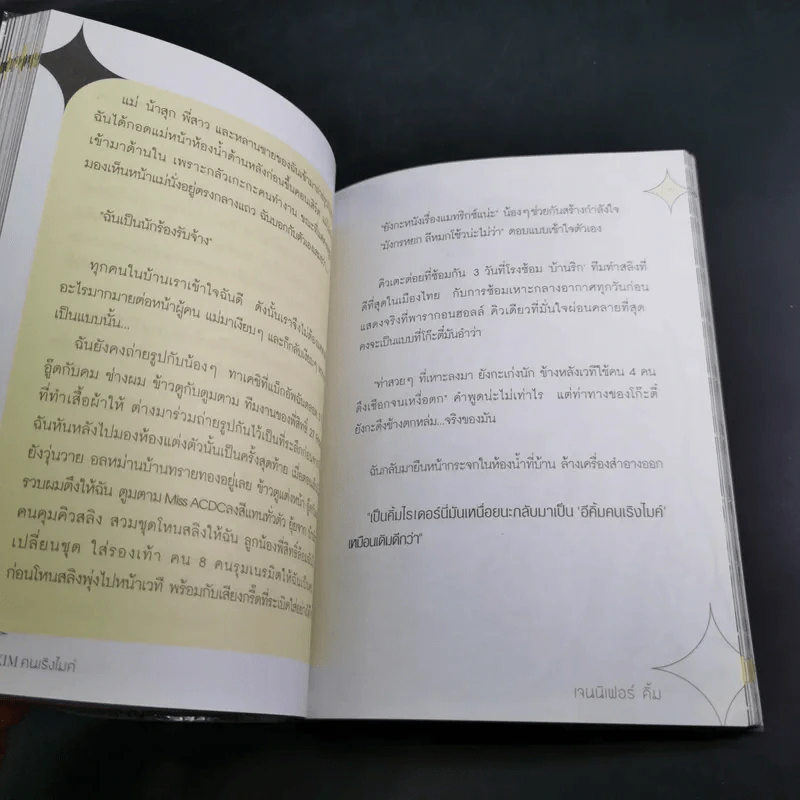 แม่ น้าสุก พี่สาว และหลานชายของฉันเข้ามา
ฉันได้กอดแม่หน้าห้องน้ำด้านหลังก่อนขึ้นคอนเสิร์ต
เข้ามาด้านใน เพราะกลัวเกะกะคนทำงาน ขณะที่
มองเห็นหน้าแม่นั่งอยู่ตรงกลางแถว ฉันบอกกับตัวเอง
"ฉันเป็นนักร้องรับจ้าง"
ทุกคนในบ้านเราเข้าใจฉันดี ดังนั้นเราจึงไม่ต้อง
อะไรมากมายต่อหน้าผู้คน แม่มาเงียบๆ และก็กลับเงียบๆ
เป็นแบบนั้น...
ฉันยังคงถ่ายรูปกับน้องๆ ทาเคชิที่แม็กอัพฉัน
อู๊ดกับคม ช่างผม ข้าวตูกับตูมตาม ทีมงานของพี่สิทธิ์ 20
ที่ทำเสื้อผ้าให้ ต่างมาร่วมถ่ายรูปกันไว้เป็นที่ระลึกก่อน
ฉันหันหลังไปมองห้องแต่งตัวนั้นเป็นครั้งสุดท้าย เมื่อ
ยังวุ่นวาย อลหม่านบ้านทรายทองอยู่เลย ข้าวตูแต่งหน้า
รวบผมตึงให้ฉัน ตูมตาม Miss ACDC ลงสีแทนทั่วตัว อุ้ยจาก
คนคุมคิวสลิง สวมชุดโหนสลิงให้ฉัน ลูกน้องพี่สิทธิ์ล้อม
เปลี่ยนชุด ใส่รองเท้า คน 8 คนรุมเนรมิตให้ฉันเป็น
ก่อนโหนสลิงพุ่งไปหน้าเวที พร้อมกับเสียงกรี๊ดที่ระเบิดใส่อย่าง
KIM คนเริงไมค์
"ยังกะหนังเรื่องแมทริกซ์แน่ะ" น้องๆ ช่วยกันสร้างกำลังใจ
"มังกรหยก ลีหมกโช้วน่ะไม่ว่า" ตอบแบบเข้าใจตัวเอง
คิวเตะต่อยที่ซ้อมกัน 3 วันที่โรงซ้อม 'บ้านริก' ทีมทำสลิงที่
ดีที่สุดในเมืองไทย กับการซ้อมเหาะกลางอากาศทุกวันก่อน
แสดงจริงที่พารากอนฮอลล์ คิวเดียวที่มั่นใจผ่อนคลายที่สุด
คงจะเป็นแบบที่โก๊ะตี๋มันอำว่า
"ท่าสวยๆ ที่เหาะลงมา ยังกะเก่งนัก ข้างหลังเวทีใช้คน 4 คน
ดึงเชือกจนเหงื่อตก" คำพูดน่ะไม่เท่าไร แต่ท่าทางของโก๊ะตี๋
ยังกะดึงช้างตกหล่ม...จริงของมัน
ฉันกลับมายืนหน้ากระจกในห้องน้ำที่บ้าน ล้างเครื่องสำอางออก
"เป็นคิ้มไรเดอร์นี่มันเหนื่อยนะกลับมาเป็น 'อีคิ้มคนเริงไมค์'
เหมือนเดิมดีกว่า"
เจนนิเฟอร์ คิ้ม